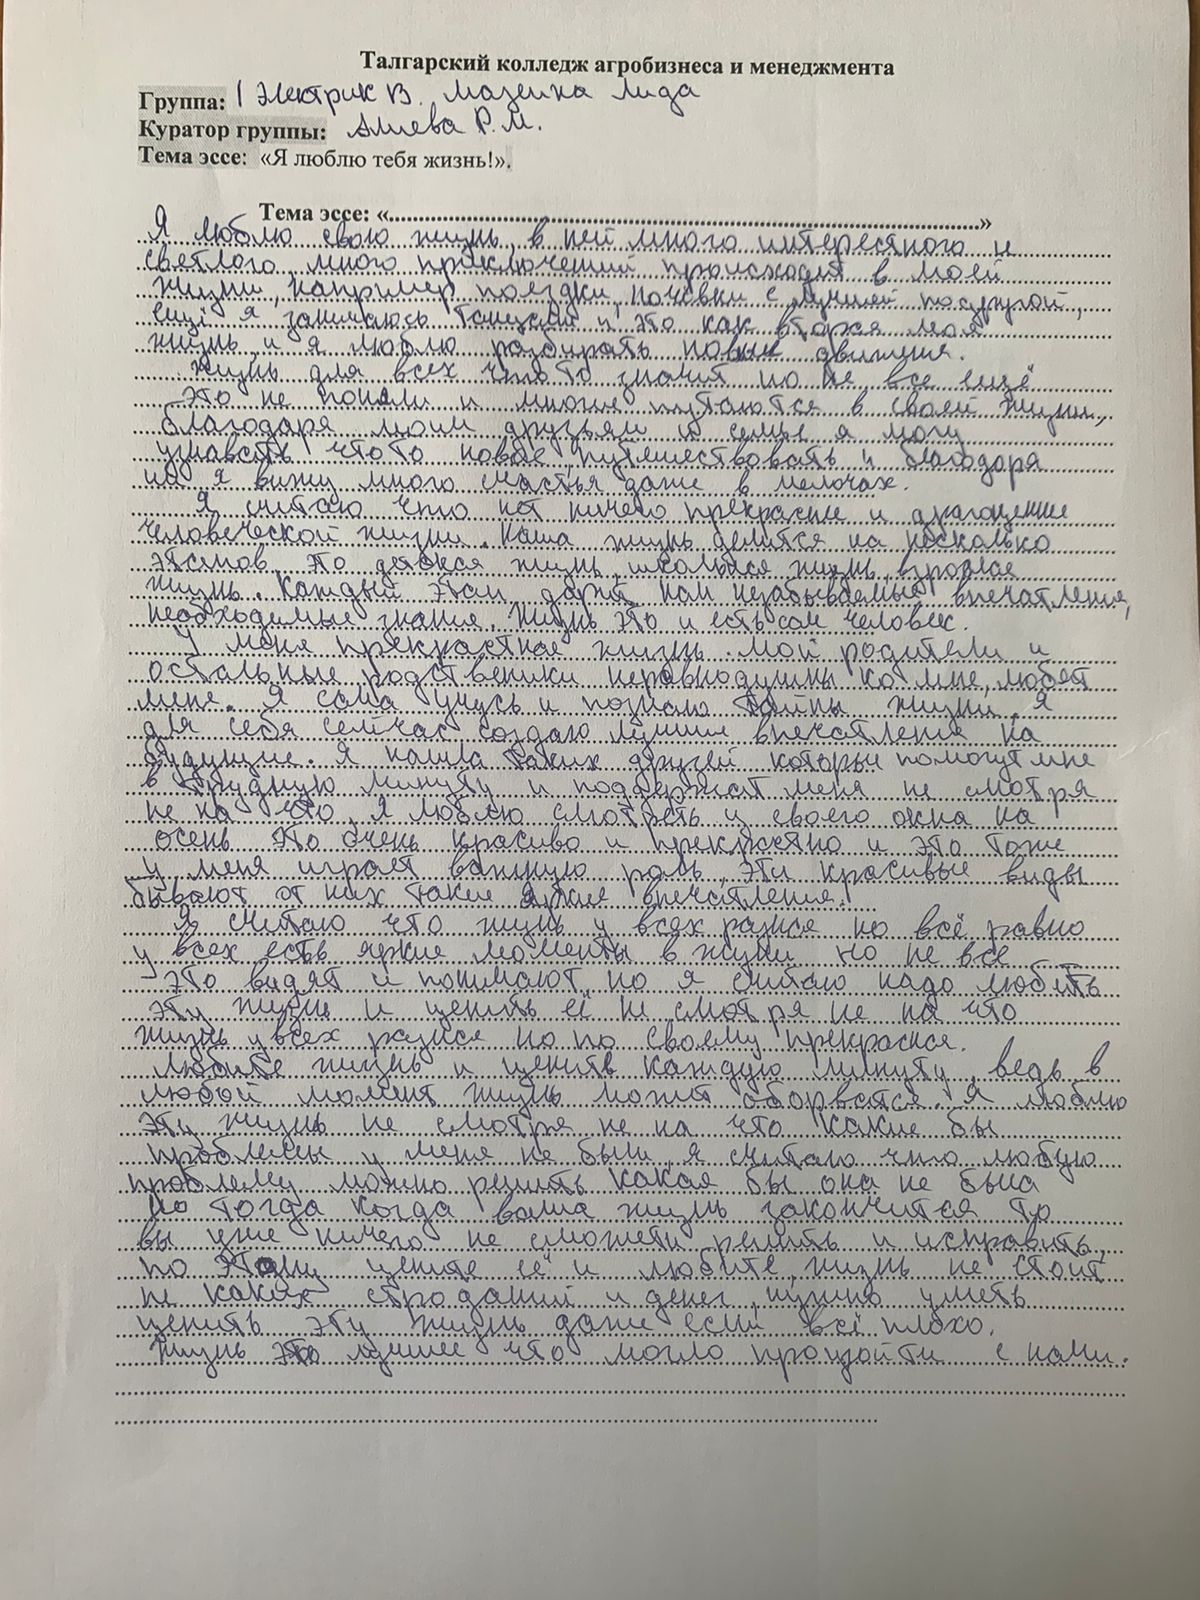 Талгарский колледж агробизнеса и менеджмента
Группа: 1 Электрик В. Мазеина Лида
Куратор группы: Алиева Р.М.
Тема эссе: «Я люблю тебя жизнь!».
Тема эссе: «....................................................................................................»
Я люблю свою жизнь, в ней много интерестного и
светлого, много приключений происходят в моей
жизни, например поездки, ночёвки с лучшей подругой,
ещё я занимаюсь танцами и это как вторая моя
жизнь и я люблю разбирать новые движения.
Жизнь для всех что то значит но не все ещё
это не поняли и многие путаются в своей жизни,
благодаря моим друзьям и семье я могу
узнавать что то новое путешествовать и благодаря
им я вижу много счастья даже в мелочах.
Я считаю что нет ничего прекрасне и драгоценне
человеческой жизни. Наша жизнь делится на несколько
этапов, это детская жизнь, школьная жизнь, взрослая
жизнь. Каждый этап дарит нам незабываемые впечатления,
необходимые знания. Жизнь это и есть сам человек.
У меня прекрастная жизнь. мои родители и
остальные родственики неравнодушны ко мне, любят
меня. Я сама учусь и познаю тайны жизни. Я
для себя сейчас создаю лучшие впечатления на
будующие. Я нашла таких друзей которые помогут мне
в трудную минуту и поддержат меня не смотря
не на что, Я люблю смотреть у своего окна на
осень это очень красиво и прекрастно и это тоже
у меня играет важную роль, эти красивые виды
бывают от них такие яркие впечатления.
Я считаю что жизнь у всех разная но всё равно
у всех есть яркие моменты в жизни но не все
это видят и понимают, но я считаю надо любить
эту жизнь и ценить её не смотря не на что
жизнь у всех разная но по своему прекрасная.
Любите жизнь и ценить каждую минуту, ведь в
любой момент жизнь может оборватся. Я люблю
эту жизнь не смотря не на что какие бы
проблемы у меня не были, я считаю что любую
проблему можно решить какая бы она не была
Но тогда когда ваша жизнь закончится то
вы уже ничего не сможете решить и исправить,
по этому цените её и любите, жизнь не стоит
не каких строданий и денег, нужно уметь
ценить эту жизнь даже если всё плохо.
Жизнь это лучшее что могло произойти с нами.